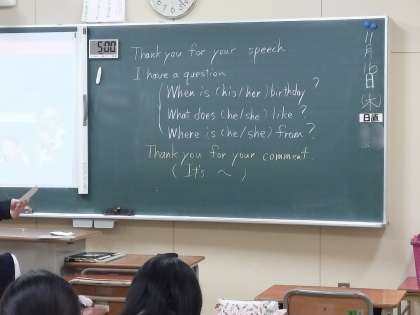 500
Thank you for your speech
I have a question
When is (his/her) birthday ?
What does (he/she) like ?
Where is (he/she) from ?
Thank you for your comment.
( It's 〜 )
11月16日(木)
日直